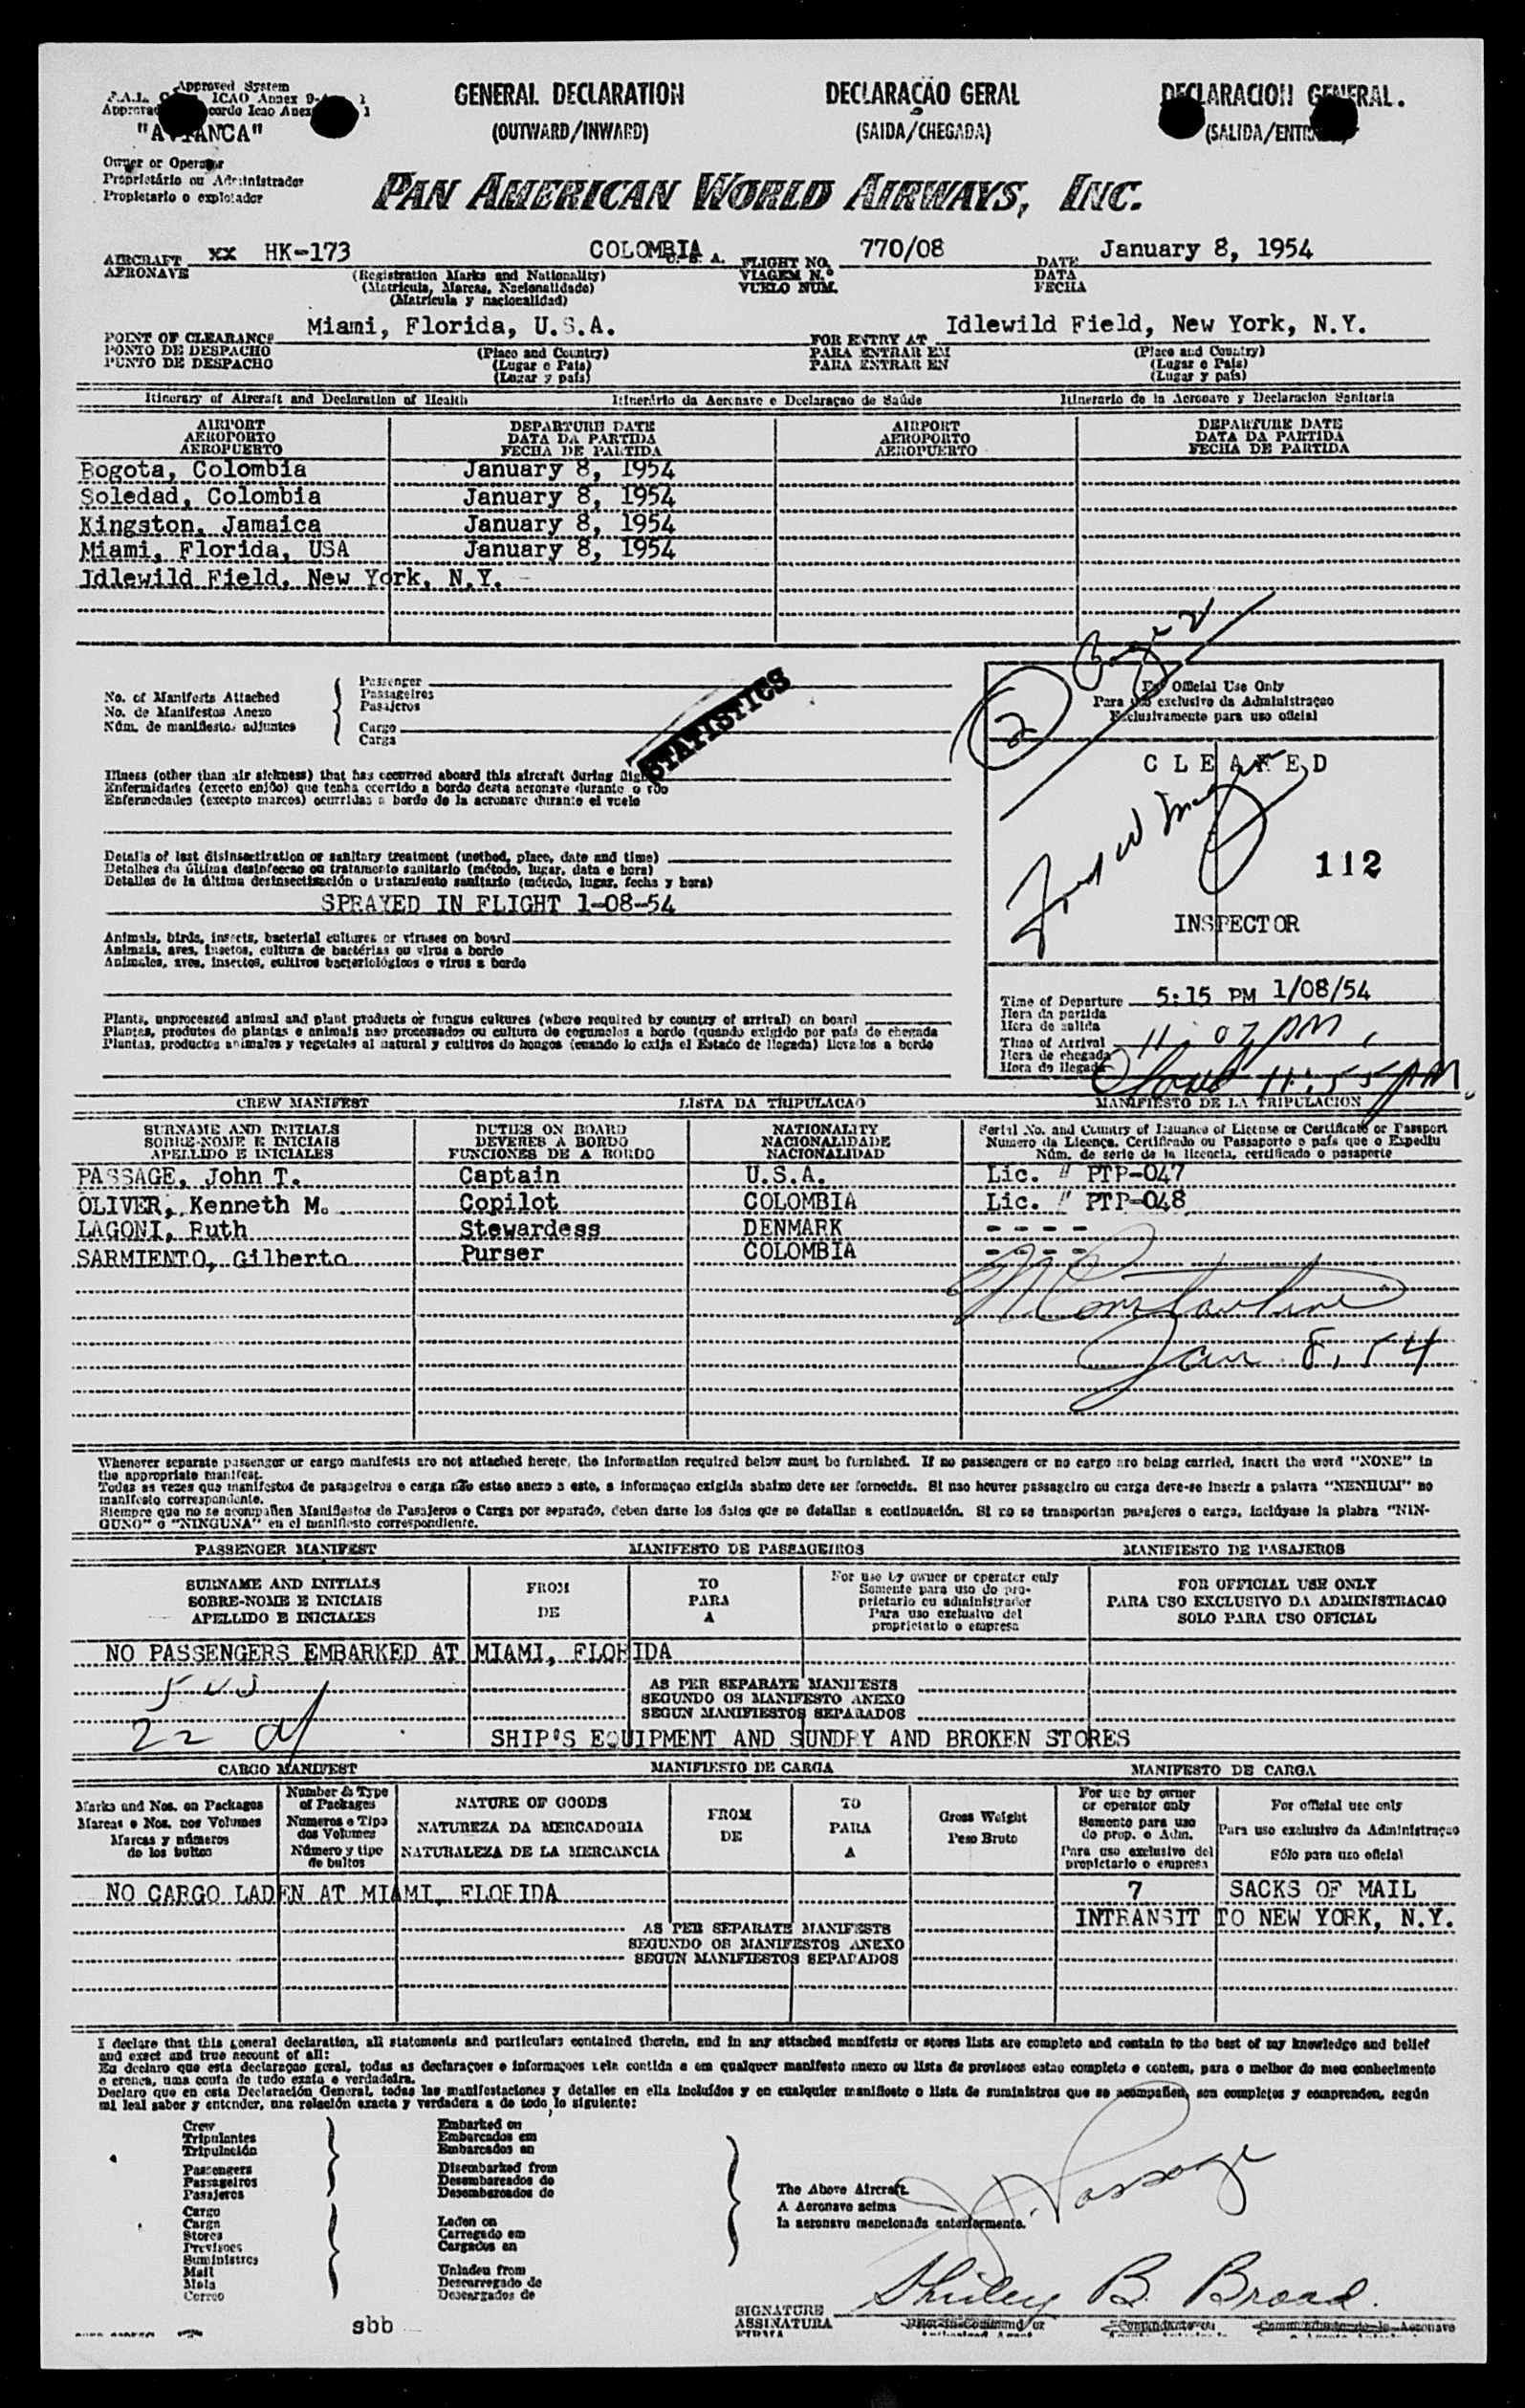 Approved System
ICAO Annex 9
"AVIANCA"
Owner or Operator
Proprietário ou Administrador
Propietario o explotador
GENERAL DECLARATION
(OUTWARD/INWARD)
DECLARAÇÃO GERAL
(SAIDA/CHEGADA)
DECLARACION GENERAL.
(SALIDA/ENTRADA)
PAN AMERICAN WORLD AIRWAYS, INC.
AIRCRAFT xx HK-173 COLOMBIA FLIGHT NO. 770/08 DATE January 8, 1954
AERONAVE (Registration Marks and Nationality) VIAGEM N.º DATA
(Matricula, Marcas, Nacionalidade) VUELO NUM. FECHA
(Matricula y nacionalidad)
POINT OF CLEARANCE Miami, Florida, U.S.A. FOR ENTRY AT Idlewild Field, New York, N.Y.
PONTO DE DESPACHO (Place and Country) PARA ENTRAR EM (Place and Country)
PUNTO DE DESPACHO (Lugar e Pais) PARA ENTRAR EN (Lugar e Pais)
(Lugar y país) (Lugar y país)
Itinerary of Aircraft and Declaration of Health Itinerário da Aeronave e Declaraçao de Saúde Itinerario de la Aeronave y Declaracion Sanitaria
AIRPORT DEPARTURE DATE AIRPORT DEPARTURE DATE
AEROPORTO DATA DA PARTIDA AEROPORTO DATA DA PARTIDA
AEROPUERTO FECHA DE PARTIDA AEROPUERTO FECHA DE PARTIDA
Bogota, Colombia January 8, 1954
Soledad, Colombia January 8, 1954
Kingston, Jamaica January 8, 1954
Miami, Florida, USA January 8, 1954
Idlewild Field, New York, N.Y.
No. of Manifests Attached
No. de Manifestos Anexo
Núm. de manifiestos adjuntos
Passenger
Passageiros
Pasajeros
Cargo
Carga
STATISTICS
2
For Official Use Only
Para uso exclusivo da Administraçao
Exclusivamente para uso oficial
CLEARED
112
INSPECTOR
Illness (other than air sickness) that has occurred aboard this aircraft during flight
Enfermidades (exceto enjôo) que tenha ocorrido a bordo desta aeronave durante o vôo
Enfermedades (excepto mareos) ocurridas a bordo de la aeronave durante el vuelo
Details of last disinsectization or sanitary treatment (method, place, date and time)
Detalhes da última desinfeccao ou tratamento sanitario (método, lugar, data e hora)
Detalles de la última desinsectización o tratamiento sanitario (método, lugar, fecha y hora)
SPRAYED IN FLIGHT 1-08-54
Animals, birds, insects, bacterial cultures or viruses on board
Animais, aves, insetos, cultura de bactérias ou virus a bordo
Animales, aves, insectos, cultivos bacteriológicos o virus a bordo
Plants, unprocessed animal and plant products or fungus cultures (where required by country of arrival) on board
Plantas, produtos de plantas e animais nao processados ou cultura de cogumelos a bordo (quando exigido por pais de chegada
Plantas, productos animales y vegetales al natural y cultivos de hongos (cuando lo exija el Estado de llegada) llevados a bordo
Time of Departure 5:15 PM 1/08/54
Hora da partida
Hora de salida
Time of Arrival 11:07 PM
Hora de chegada
Hora de llegada 11:55 PM
CREW MANIFEST LISTA DA TRIPULACAO MANIFIESTO DE LA TRIPULACION
SURNAME AND INITIALS DUTIES ON BOARD NATIONALITY Serial No. and Country of Issuance of License or Certificate or Passport
SOBRE-NOME E INICIAIS DEVERES A BORDO NACIONALIDADE Numero da Licença, Certificado ou Passaporte o pais que o Expediu
APELLIDO E INICIALES FUNCIONES DE A BORDO NACIONALIDAD Núm. de serie de la licencia, certificado o pasaporte
PASSAGE, John T. Captain U.S.A. Lic. # PTP-047
OLIVER, Kenneth M. Copilot COLOMBIA Lic. " PTP-048
LAGONI, Ruth Stewardess DENMARK - - - -
SARMIENTO, Gilberto Purser COLOMBIA - - - -
Jan 8, 54
Whenever separate passenger or cargo manifests are not attached hereto, the information required below must be furnished. If no passengers or no cargo are being carried, insert the word "NONE" in
the appropriate manifest.
Todas as vezes que manifestos de passageiros e carga não estao anexo a este, a informaçao exigida abaixo deve ser fornecida. Si nao houver passageiro ou carga deve-se inscrir a palavra "NENHUM" no
manifesto correspondente.
Siempre que no se acompañen Manifiestos de Pasajeros o Carga por separado, deben darse los datos que se detallan a continuación. Si no se transportan pasajeros o carga, inclúyase la plabra "NIN-
GUNO" o "NINGUNA" en el manifiesto correspondiente.
PASSENGER MANIFEST MANIFESTO DE PASSAGEIROS MANIFIESTO DE PASAJEROS
SURNAME AND INITIALS FROM TO For use by owner or operator only FOR OFFICIAL USE ONLY
SOBRE-NOME E INICIAIS DE PARA Somente para uso do pro- PARA USO EXCLUSIVO DA ADMINISTRACAO
APELLIDO E INICIALES A prietario ou administrador SOLO PARA USO OFICIAL
Para uso exclusivo del
propietario o empresa
NO PASSENGERS EMBARKED AT MIAMI, FLORIDA
AS PER SEPARATE MANIFESTS
SEGUNDO OS MANIFESTO ANEXO
SEGUN MANIFIESTOS SEPARADOS
22
SHIP'S EQUIPMENT AND SUNDRY AND BROKEN STORES
CARGO MANIFEST MANIFIESTO DE CARGA MANIFESTO DE CARGA
Marks and Nos. on Packages
Marcas e Nos. nos Volumes
Marcas y números
de los bultos
Number & Type
of Packages
Numeros e Tipo
dos Volumes
Número y tipo
de bultos
NATURE OF GOODS
NATUREZA DA MERCADORIA
NATURALEZA DE LA MERCANCIA
FROM
DE
TO
PARA
A
Gross Weight
Peso Bruto
For use by owner
or operator only
Somente para uso
do prop. o Adm.
Para uso exclusivo del
propietario o empresa
For official use only
Para uso exclusivo da Administraçao
Sólo para uso oficial
NO CARGO LADEN AT MIAMI, FLORIDA 7 SACKS OF MAIL
INTRANSIT TO NEW YORK, N.Y.
AS PER SEPARATE MANIFESTS
SEGUNDO OS MANIFESTOS ANEXO
SEGUN MANIFIESTOS SEPARADOS
I declare that this general declaration, all statements and particulars contained therein, and in any attached manifests or stores lists are complete and contain to the best of my knowledge and belief
and exact and true account of all:
Eu declaro que esta declaraçao geral, todas as declaraçoes e informaçoes nela contida e em qualquer manifesto anexo ou lista de provisoes estao completo e contem, para o melhor do meu conhecimento
e crenca, uma conta de tudo exata e verdadeira.
Declaro que en esta Declaración General, todas las manifestaciones y detalles en ella incluidos y en cualquier manifiesto o lista de suministros que se acompañen, son completos y comprenden, según
mi leal saber y entender, una relación exacta y verdadera a de todo lo siguiente:
Crew
Tripulantes
Tripulación
Passengers
Passageiros
Pasajeros
Cargo
Carga
Stores
Previsoes
Suministros
Mail
Mala
Correo
Embarked on
Embarcados em
Embarcados en
Disembarked from
Desembarcados de
Desembarcados de
Laden on
Carregado em
Cargados en
Unladen from
Descarregado de
Descargados de
The Above Aircraft.
A Aeronave acima
la aeronave mencionada anteriormente.
J. Passage
Shirley B. Broad.
SIGNATURE
ASSINATURA
FIRMA
Pilot-in-Command or
sbb